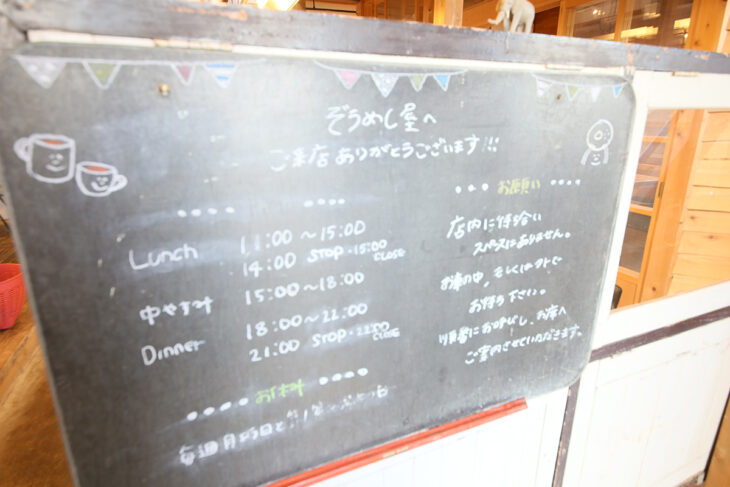 ぞうめし屋へ
ご来店ありがとうございます!!!
Lunch 11:00〜15:00
14:00 STOP・15:00 CLOSE
中やすみ 15:00〜18:00
Dinner 18:00〜22:00
21:00 STOP・22:00 CLOSE
お休み
毎週月曜日と
お願い
店内に待合い
スペースにありません。
お車の中、もしくは外で
お待ち下さい。
順番にお呼びし、お席へ
ご案内させていただきます。